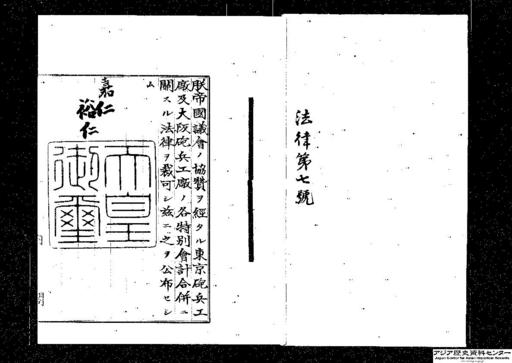 法律第七號
朕帝國議會ノ協贊ヲ經タル東京砲兵工
廠及大阪砲兵工廠ノ各特別會計合併ニ
關スル法律ヲ裁可シ玆ニ之ヲ公布セシ
ム
嘉仁
裕仁
天皇
御璽
アジア歴史資料センター
Japan Center for Asian Historical Records